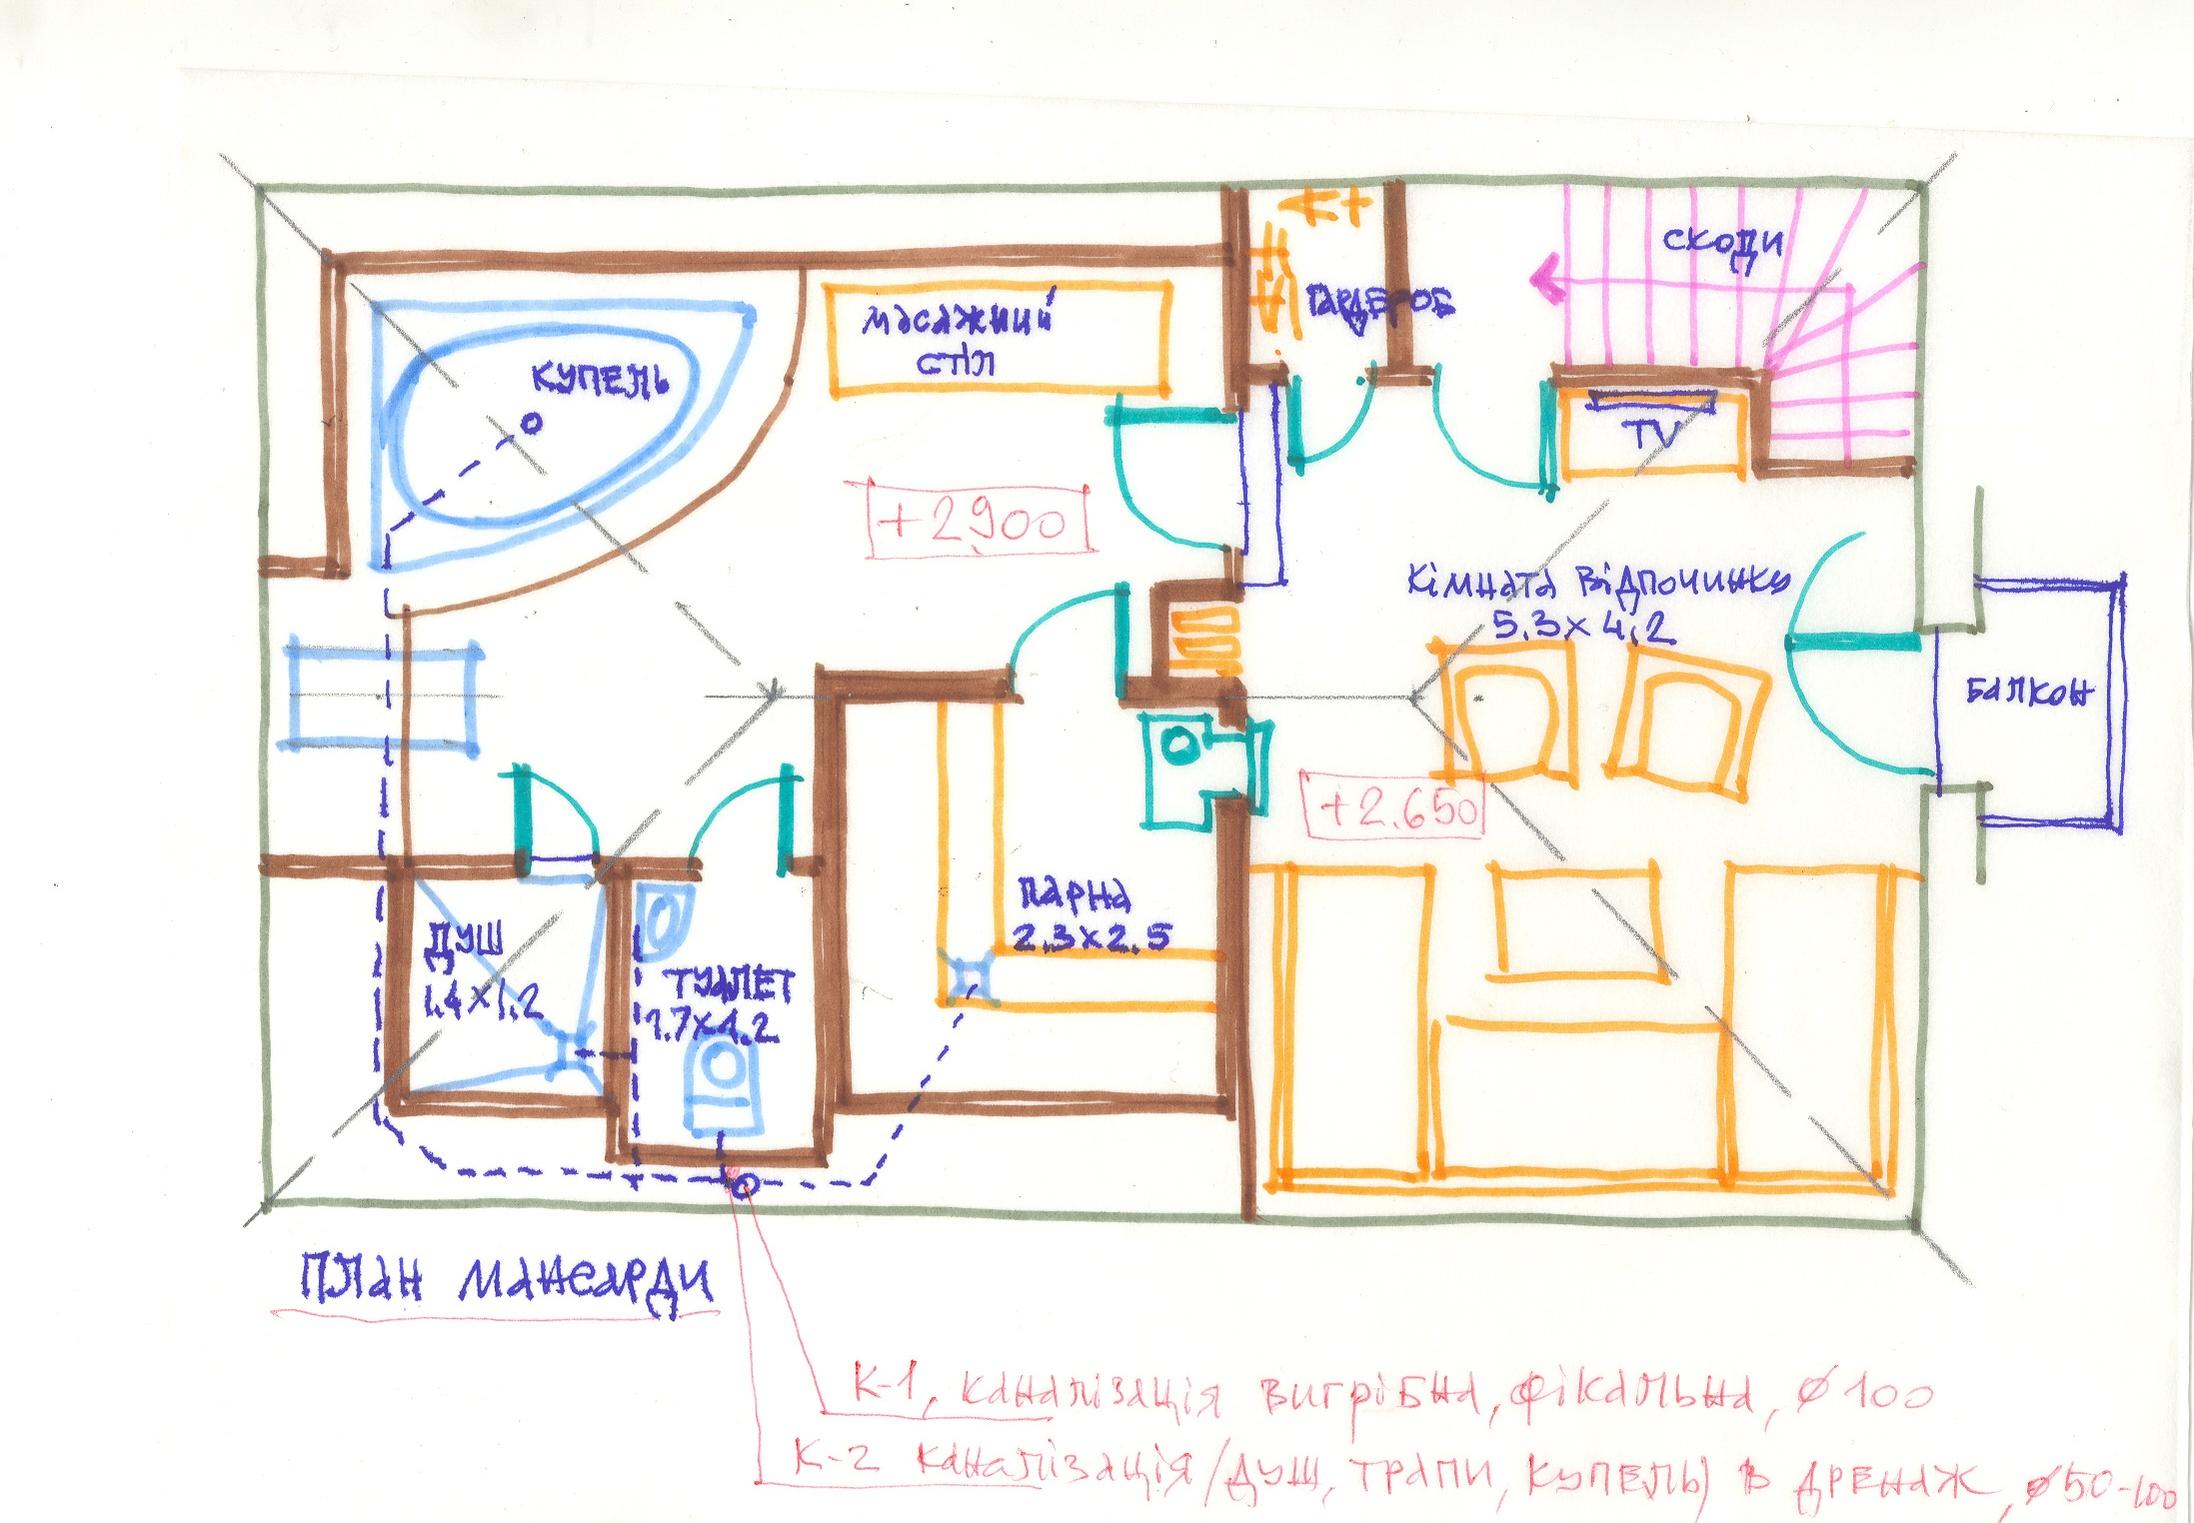 СХОДИ
ГАРДЕРОБ
МАСАЖНИЙ
СТІЛ
КУПЕЛЬ
TV
+2.900
КІМНАТА ВІДПОЧИНКУ
5.3 х 4.2
БАЛКОН
+2.650
ПАРНА
2.3 х 2.5
ДУШ
1.4 х 1.2
ТУАЛЕТ
1.7 х 1.2
ПЛАН МАНСАРДИ
К-1, каналізація вигрібна, фікальна, ø 100
К-2 каналізація /душ, трапи, купель/ в дренаж, ø50-100